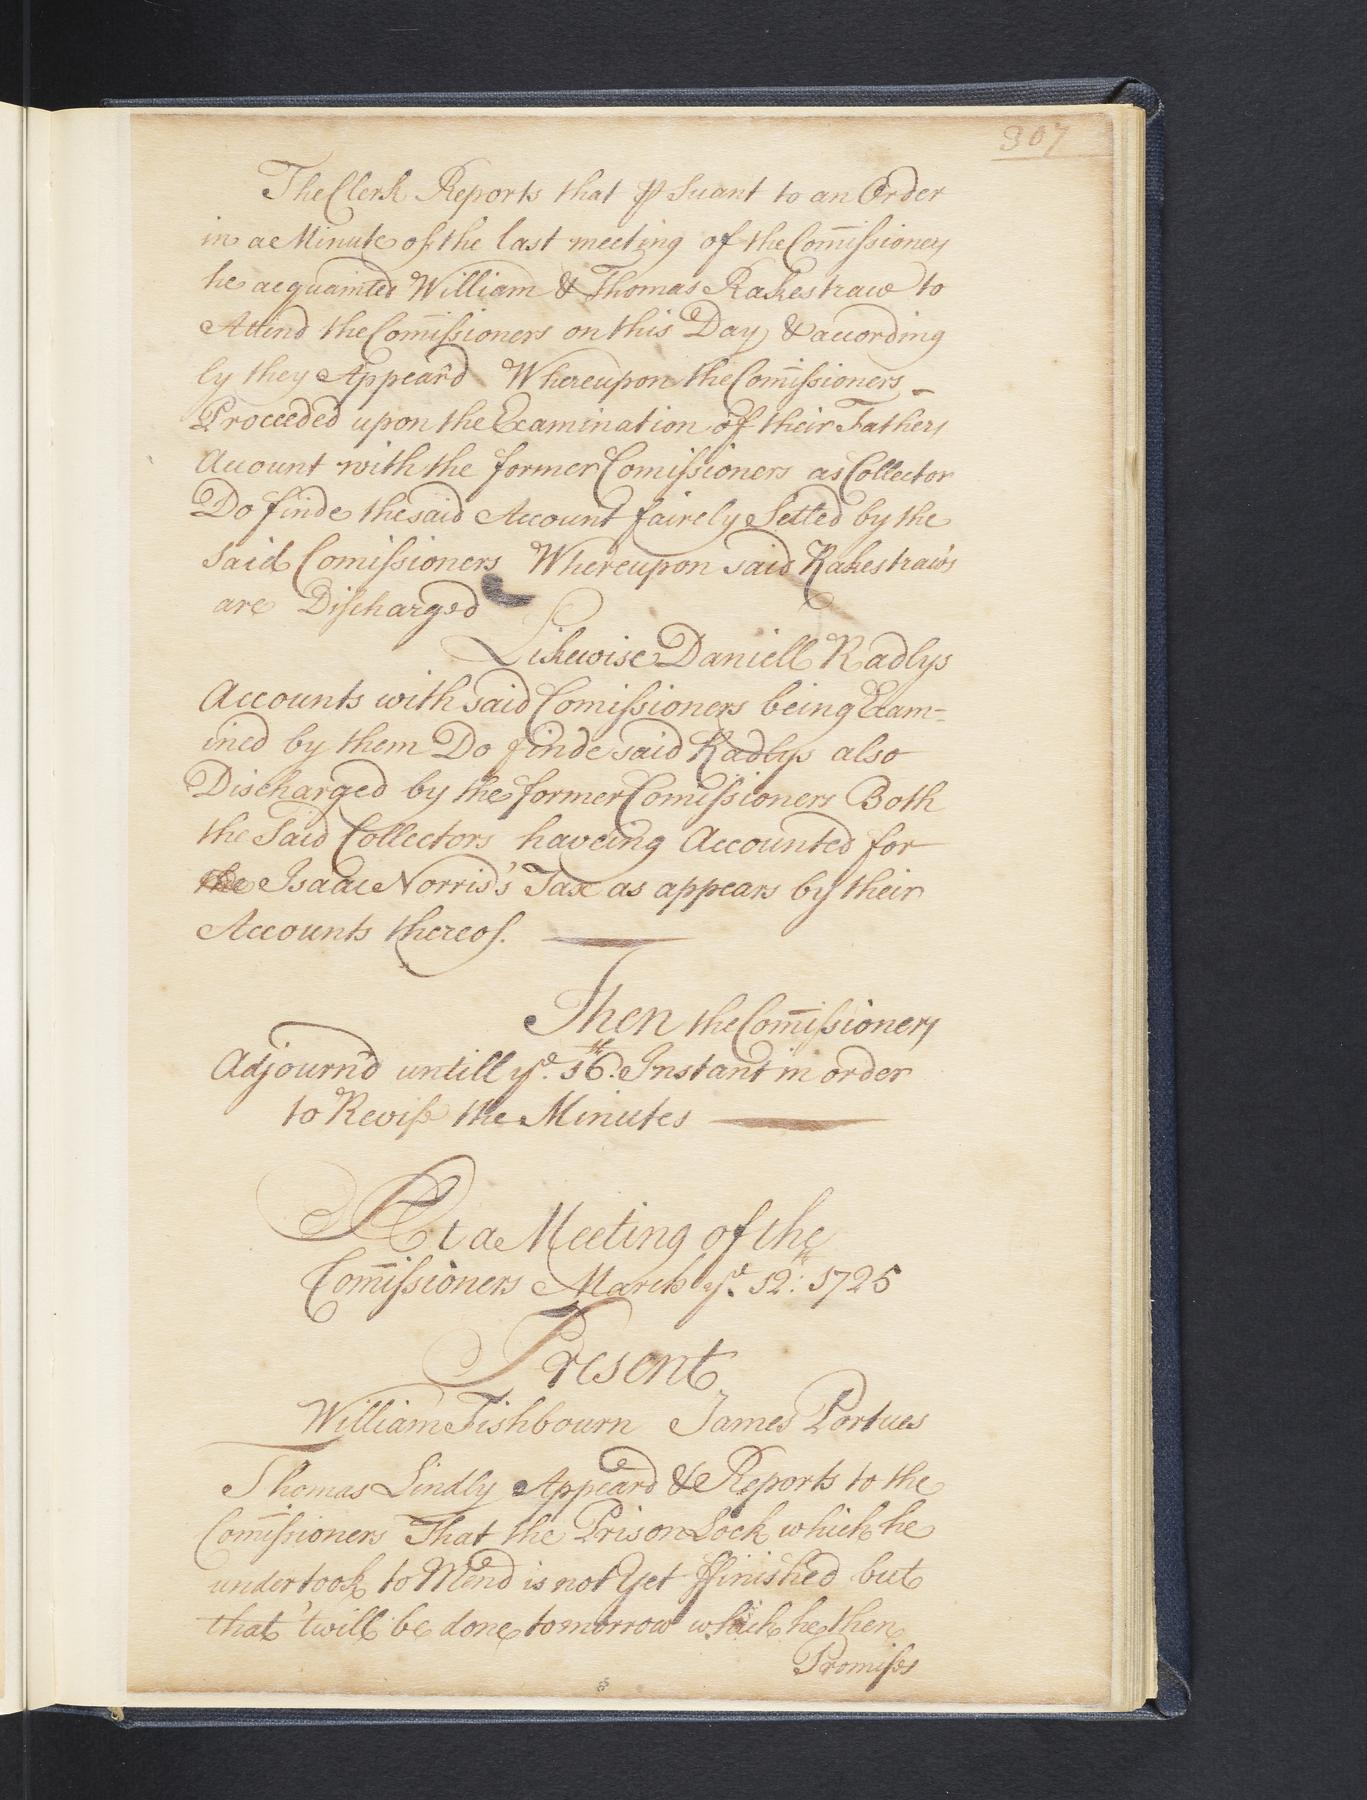 307
The Clerk Reports that ꝑSuant to an Order
in a Minute of the last meeting of the Com̄issioners
he acquainted William & Thomas Rakestraw to
Attend the Com̄issioners on this Day & according
ly they Appear'd Whereupon the Com̄issioners
Proceeded upon the Examination of their Fathers
Account with the former Comissioners as Collector
Do finde the said Account fairely Setled by the
Said Comissioners Whereupon said Rakestraws
are Discharged
Likewise Daniell Radlys
Accounts with said Comissioners being Exam=
ined by them Do finde said Radlys also
Discharged by the former Comissioners Both
the Said Collectors haveing Accounted for
the Isaac Norris's Tax as appears by their
Accounts thereof.
Then the Com̄issioners
Adjourn'd untill yᵉ. 16ᵗʰ. Instant in order
to Revise the Minutes
At a Meeting of the
Com̄issioners March yᵉ. 12ᵗʰ: 1725
Present
William Fishbourn James Portues
Thomas Lindly Appeard & Reports to the
Com̄issioners That the Prison Lock which he
undertook to Mend is not Yet ffinished but
that 'twill be done tomorrow which he then
Promises